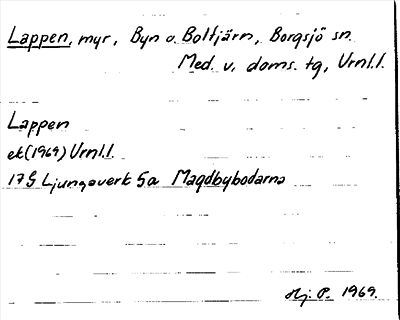 Lappen, myr, Byn o. Boltjärn, Borgsjö sn.
Med. v. doms. tg, Vrnl.l.
Lappen
ek(1969) Vrnl.l.
17G Ljungaverk 5a Magdbybodarna
Hj. P. 1969.